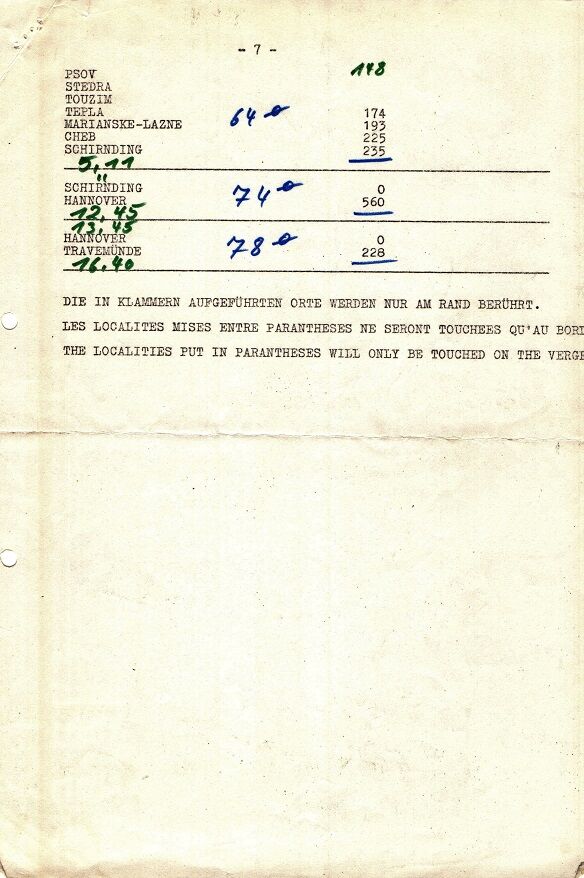 - 7 -
PSOV 148
STEDRA
TOUZIM
TEPLA 64 ø 174
MARIANSKE-LAZNE 193
CHEB 225
SCHIRNDING 235
5,11
"
SCHIRNDING 74 ø 0
HANNOVER 560
12,45
13,45
HANNOVER 78 ø 0
TRAVEMÜNDE 228
16.40
DIE IN KLAMMERN AUFGEFÜHRTEN ORTE WERDEN NUR AM RAND BERÜHRT.
LES LOCALITES MISES ENTRE PARANTHESES NE SERONT TOUCHEES QU'AU BORD
THE LOCALITIES PUT IN PARANTHESES WILL ONLY BE TOUCHED ON THE VERGE